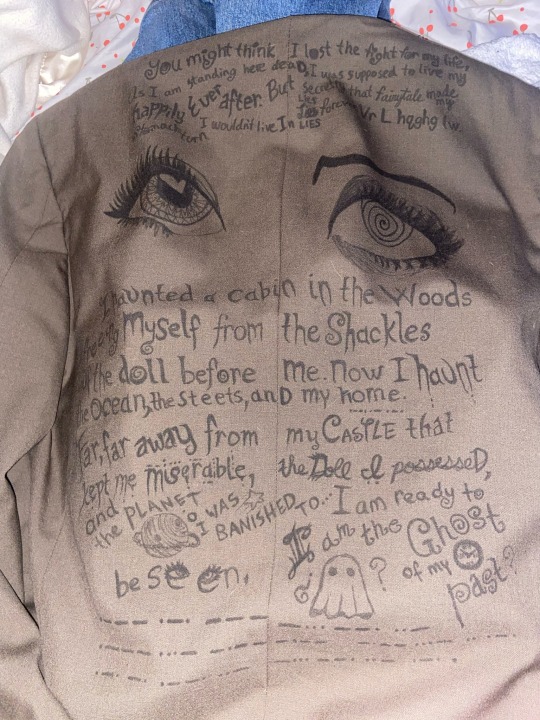 You might think I lost the fight for my life,
Is I am standing here deaD, I was supposed to live my
happily Ever after. But secretly that fairytale made my
stomach turn I wouldn't live In LIES
Lies
Lies forever Vr L hqghg lw.
I haunted a cabin in the Woods
Myself from the Shackles
the doll before me. Now I haunt
the Ocean, the Steets, anD my home.
Far, far away from my CasTLE that
kept me miserable, the Doll I possesseD,
and the PLANET I WAS BANISHED TO... I am ready to
be seen. I am the Ghost of my past?
?